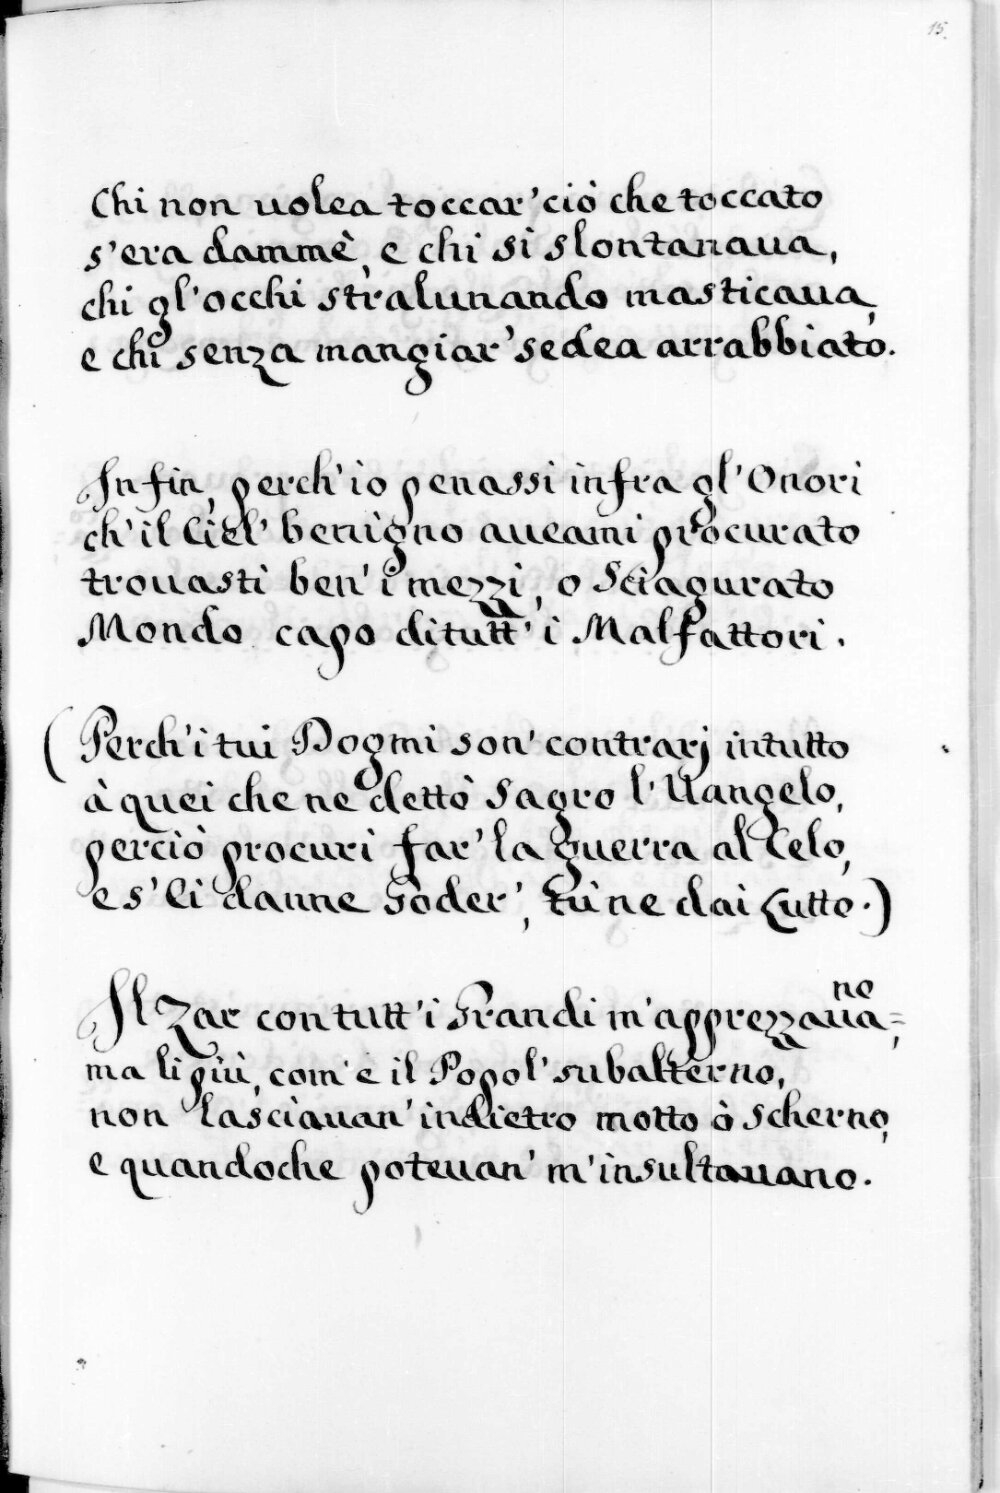 15.
Chi non uolea toccar' ciò che toccato
s'era dammè, e chi si slontanaua,
chi gl'occhi stralunando masticaua,
e chi senza mangiar' sedea arrabbiato.
In fin, perch'io penassi infra gl'Onori
ch'il Ciel' benigno aueami procurato
trouasti ben' i mezzi, o Sciagurato
Mondo capo di tutt' i Malfattori.
(Perch'i tui Dogmi son' contrarj in tutto
à quei che ne dettò Sagro l'Uangelo,
perciò procuri far' la guerra al Celo,
e s'li danne Goder', tù ne dai Lutto.)
Il Zar con tutt'i Grandi m'apprezzauano,
ma li più, com'è il Popol' subalterno,
non lasciauan' indietro motto ò Scherno,
e quandoche poteuan' m'insultauano.